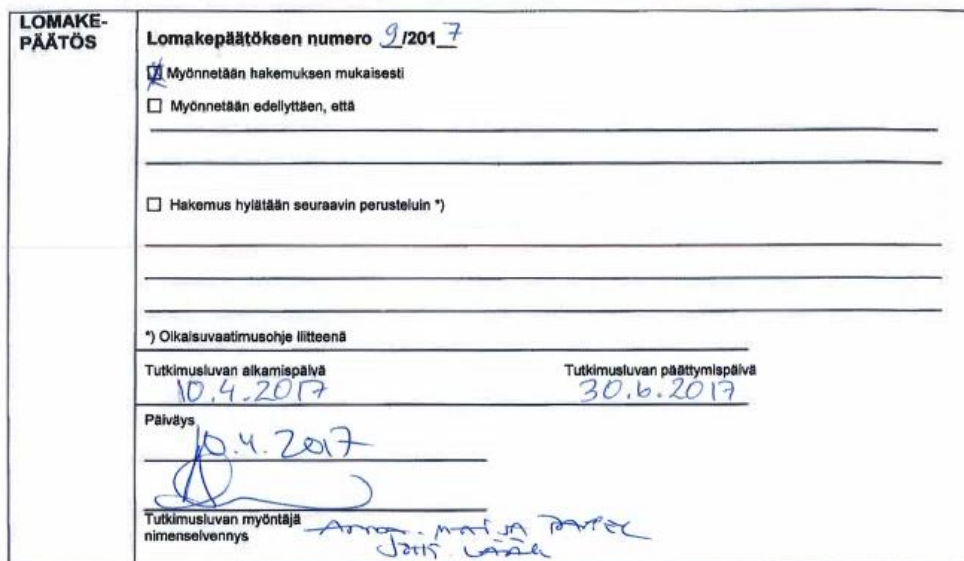 LOMAKE-
PÄÄTÖS
Lomakepäätöksen numero 9/2017
Myönnetään hakemuksen mukaisesti
Myönnetään edellyttäen, että
Hakemus hylätään seuraavin perusteluin *)
*) Oikaisuvaatimusohje liitteenä
Tutkimusluvan alkamispäivä Tutkimusluvan päättymispäivä
10.4.2017 30.6.2017
Päiväys
10.4.2017
Tutkimusluvan myöntäjä
nimenselvennys